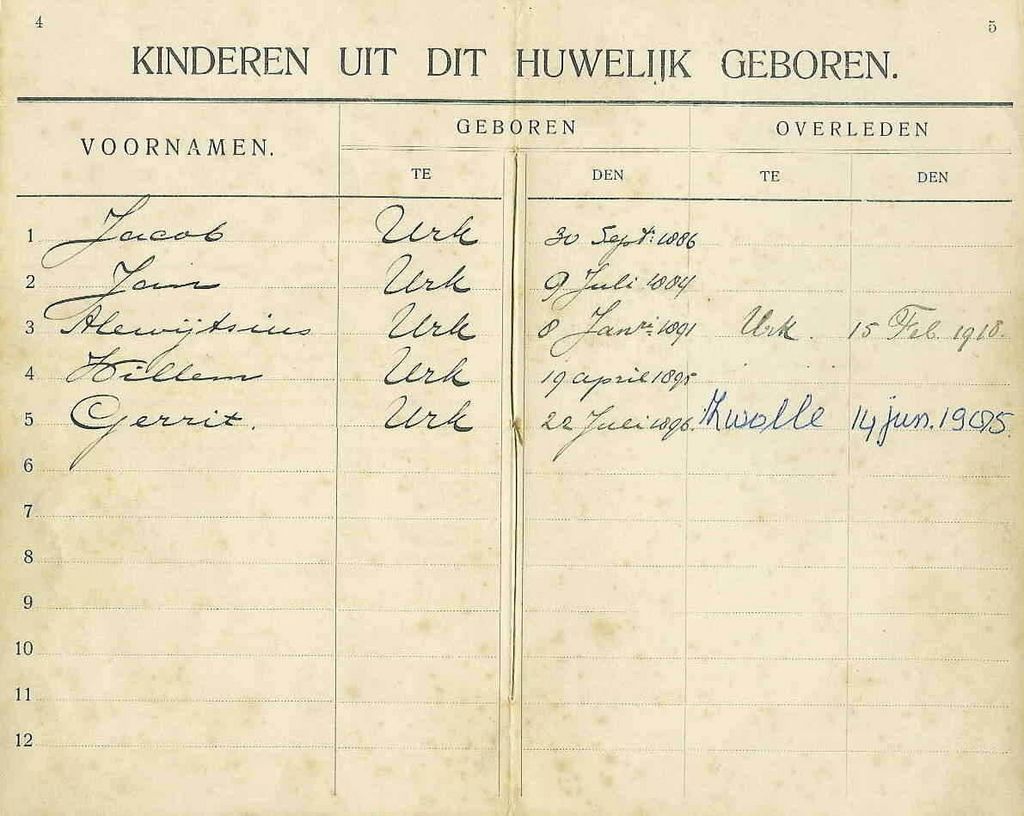 4 5
KINDEREN UIT DIT HUWELIJK GEBOREN.
VOORNAMEN. GEBOREN OVERLEDEN
TE DEN TE DEN
1 Jacob Urk 30 Sept: 1886
2 Jan Urk 9 Juli
3 Alewijtsius Urk 8 Janri: 1891 Urk. 15 Feb. 1918.
4 Willem Urk 19 april 1895
5 Gerrit. Urk 22 Juli 1896. Zwolle 14 jun.
6
7
8
9
10
11
12